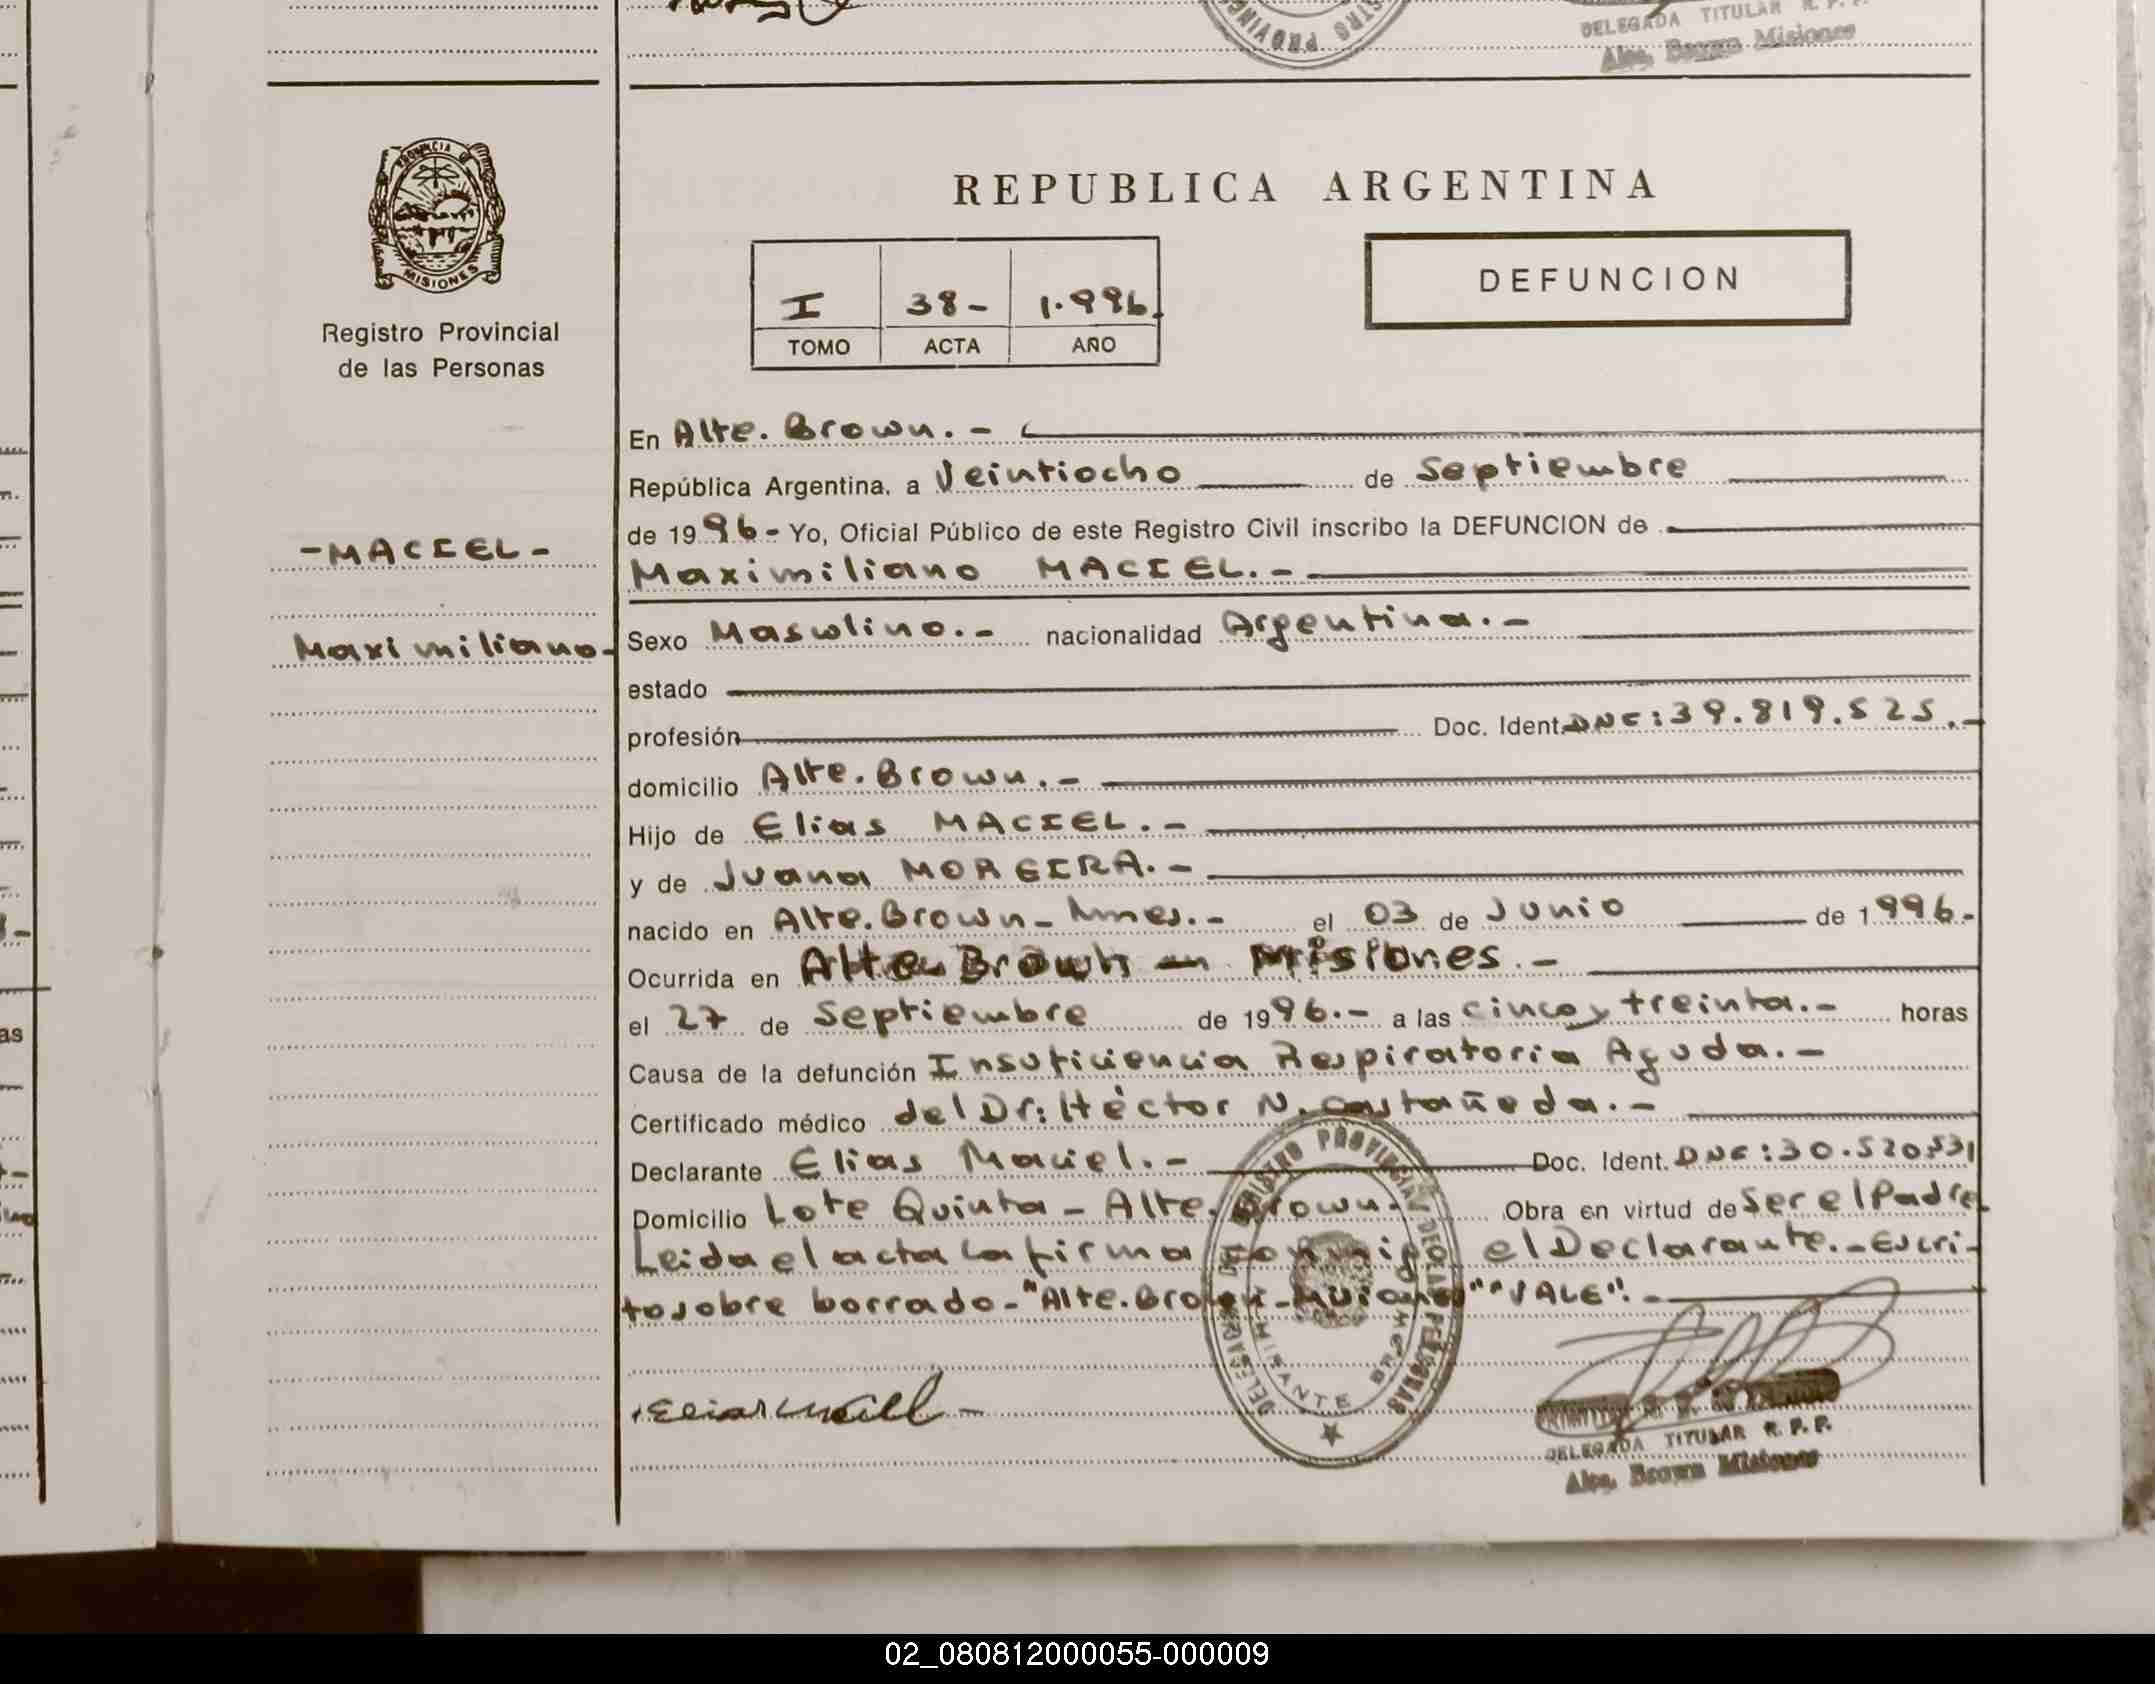 DELEGADA TITULAR R. P. P.
Alte. Brown Misiones
PROVINCIA DE
MISIONES
Registro Provincial
de las Personas
-MACIEL-
Maximiliano-
REPUBLICA ARGENTINA
I 38- 1.996.
TOMO ACTA AÑO
DEFUNCION
En Alte. Brown.-
República Argentina, a Veintiocho de Septiembre
de 1996- Yo, Oficial Público de este Registro Civil inscribo la DEFUNCION de
Maximiliano MACIEL.-
Sexo Masculino.- nacionalidad Argentina.-
estado
profesión Doc. Ident. DNI: 39.819.525.-
domicilio Alte. Brown.-
Hijo de Elias MACIEL.-
y de Juana MOREIRA.-
nacido en Alte. Brown- Mnes.- el 03 de Junio de 1.996.-
Ocurrida en Alte. Brown - Misiones.-
el 27 de Septiembre de 1996.- a las cinco y treinta.- horas
Causa de la defunción Insuficiencia Respiratoria Aguda.-
Certificado médico del Dr: Héctor N. Castañeda.-
Declarante Elias Maciel.- Doc. Ident. DNI: 30.520.531
Domicilio Lote Quinta - Alte. Brown.- Obra en virtud de Ser el Padre.
Leida el acta la firma conmigo el Declarante.- Escri-
to sobre borrado-"Alte. Brown-Misiones" "VALE".-
DELEGACION DEL REGISTRO PROVINCIAL DE LAS PERSONAS
ALMIRANTE BROWN
Elias Maciel -
DELEGADA TITULAR R. P. P.
Alte. Brown Misiones
02_080812000055-000009